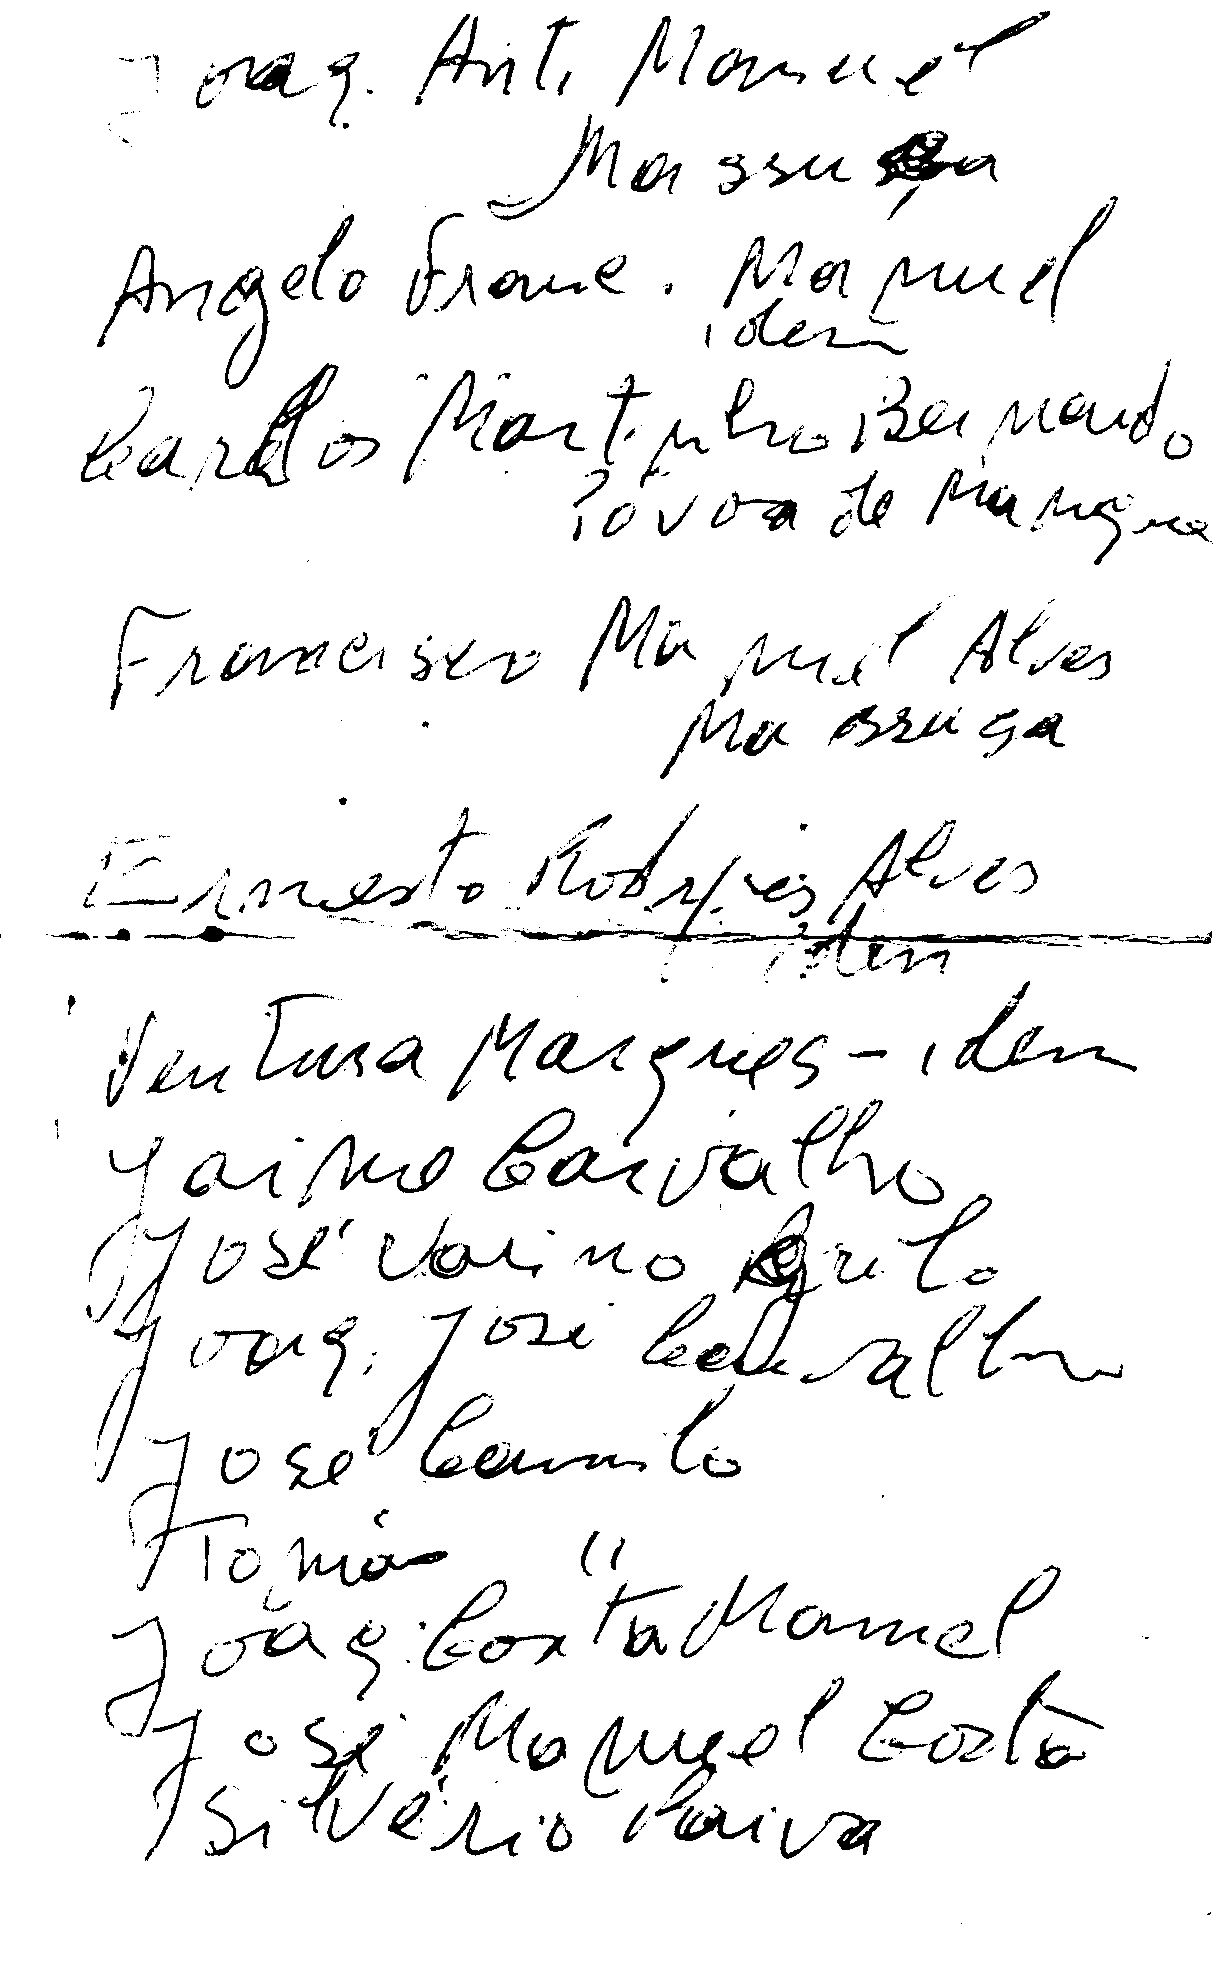 Joaq. Ant. Manuel
Massuça
Angelo Franc. Manuel
idem
Carlos Martinho Bernardo
Póvoa de Manique
Francisco Manuel Alves
Massuça
Ernesto Rodrigues Alves
idem
Ventura Marques - idem
Jaime Carvalho
José Varino Grilo
Joaq. José Carvalho
José Camilo
Tomás "
Joaq. Costa Manuel
José Manuel Costa
Silvério Paiva